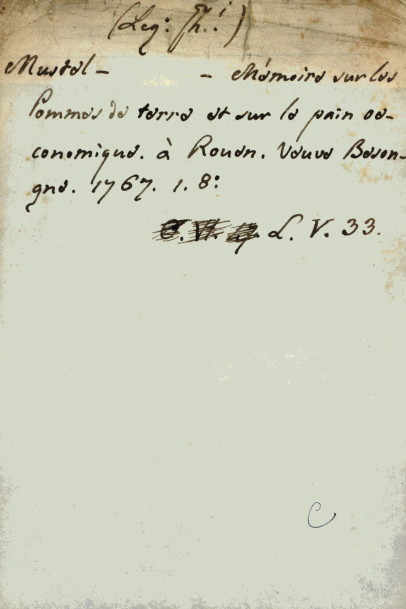 (Leg: Th:)
Mustel - - Mémoire sur les
Pommes de terre et sur le pain oe-
conomique. à Rouen. Veuve Beson-
gne. 1767. 1. 8:
L. V. 33.
C